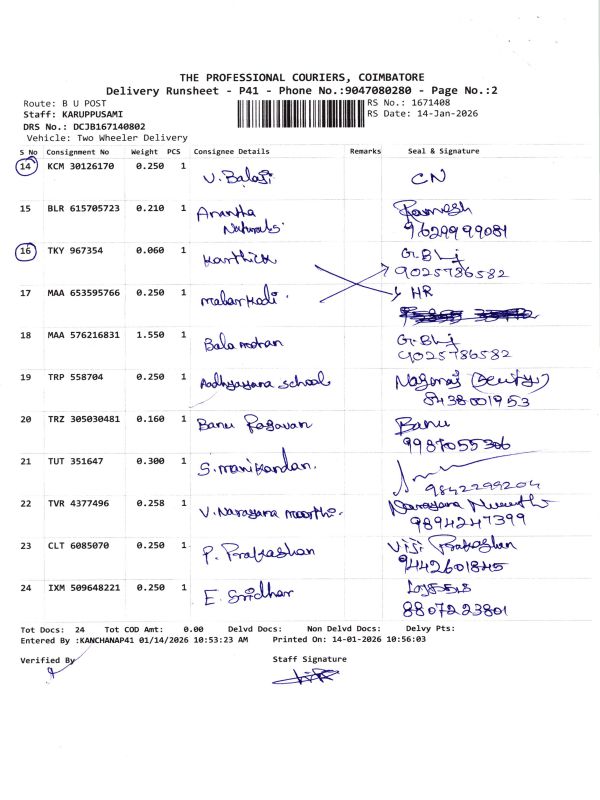 THE PROFESSIONAL COURIERS, COIMBATORE
Delivery Runsheet - P41 - Phone No.:9047080280 - Page No.:2
Route: B U POST
RS No.: 1671408
Staff: KARUPPUSAMI
RS Date: 14-Jan-2026
DRS No.: DCJB167140802
Vehicle: Two Wheeler Delivery
S No Consignment No Weight PCS Consignee Details Remarks Seal & Signature
14 KCM 30126170 0.250 1 V. Balaji CN
15 BLR 615705723 0.210 1 Anantha Ramesh
Naturals 9629999081
16 TKY 967354 0.060 1 Karthick
9025786582
17 MAA 653595766 0.250 1 HR
18 MAA 576216831 1.550 1 Bala mohan
9025786582
19 TRP 558704 0.250 1 Aadhyayana school Nagaraj
8438001953
20 TRZ 305030481 0.160 1 Banu Banu
21 TUT 351647 0.300 1 S. manikandan.
9842299204
22 TVR 4377496 0.258 1 V. Narayana moorthi.
9894247399
23 CLT 6085070 0.250 1 P. Prakashan Viji Prakashan
9442601845
24 IXM 509648221 0.250 1 E. Sridhar
8807223801
Tot Docs: 24 Tot COD Amt: 0.00 Delvd Docs: Non Delvd Docs: Delvy Pts:
Entered By :KANCHANAP41 01/14/2026 10:53:23 AM Printed On: 14-01-2026 10:56:03
Verified By Staff Signature